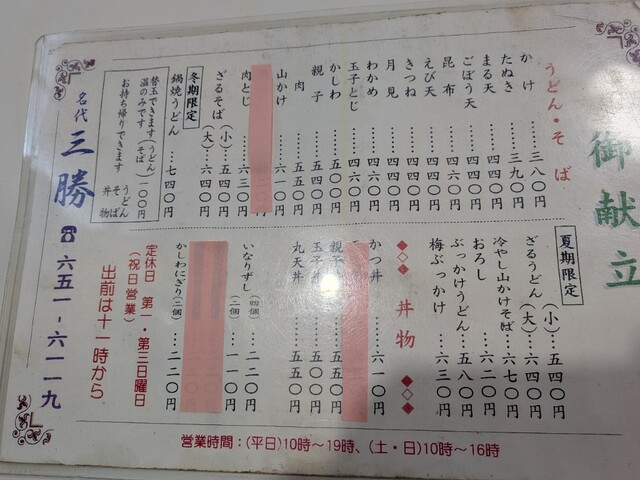 御献立
うどん・そば
かけ……三八〇円
たぬき……三九〇円
まる天……四四〇円
ごぼう天……四四〇円
昆布……四六〇円
えび天……四四〇円
きつね……四四〇円
月見……四四〇円
わかめ……四六〇円
玉子とじ……四六〇円
かしわ……五〇〇円
親子……五四〇円
肉……五五〇円
山かけ……六一〇円
肉とじ……六三〇円
ざるそば(小)…五四〇円
(大)…六四〇円
冬期限定
鍋焼うどん…七四〇円
替玉できます(うどん)一〇〇円
温のみです(そば)
お持ち帰りできます うどん
そば
丼物
夏期限定
ざるうどん(小)…五四〇円
(大)…六四〇円
冷やし山かけそば…六七〇円
おろし……六二〇円
ぶっかけうどん…五八〇円
梅ぶっかけ……六三〇円
丼物
かつ丼……六一〇円
親子丼……五五〇円
玉子丼……五〇〇円
丸天丼……五五〇円
いなりずし(四個)…二二〇円
(二個)…一一〇円
かしわにぎり(二個)…二二〇円
定休日 第一・第三日曜日
(祝日営業)
出前は十一時から
名代 三勝
☎六五一-六一一九
営業時間:(平日)10時〜19時、(土・日)10時〜16時